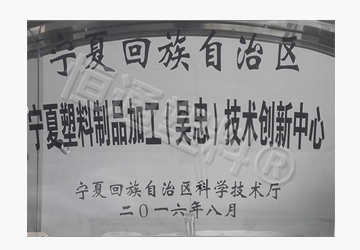 宁夏回族自治区
宁夏塑料制品加工(吴忠)技术创新中心
宁夏回族自治区科学技术厅
二〇一六年八月
恒通塑料®